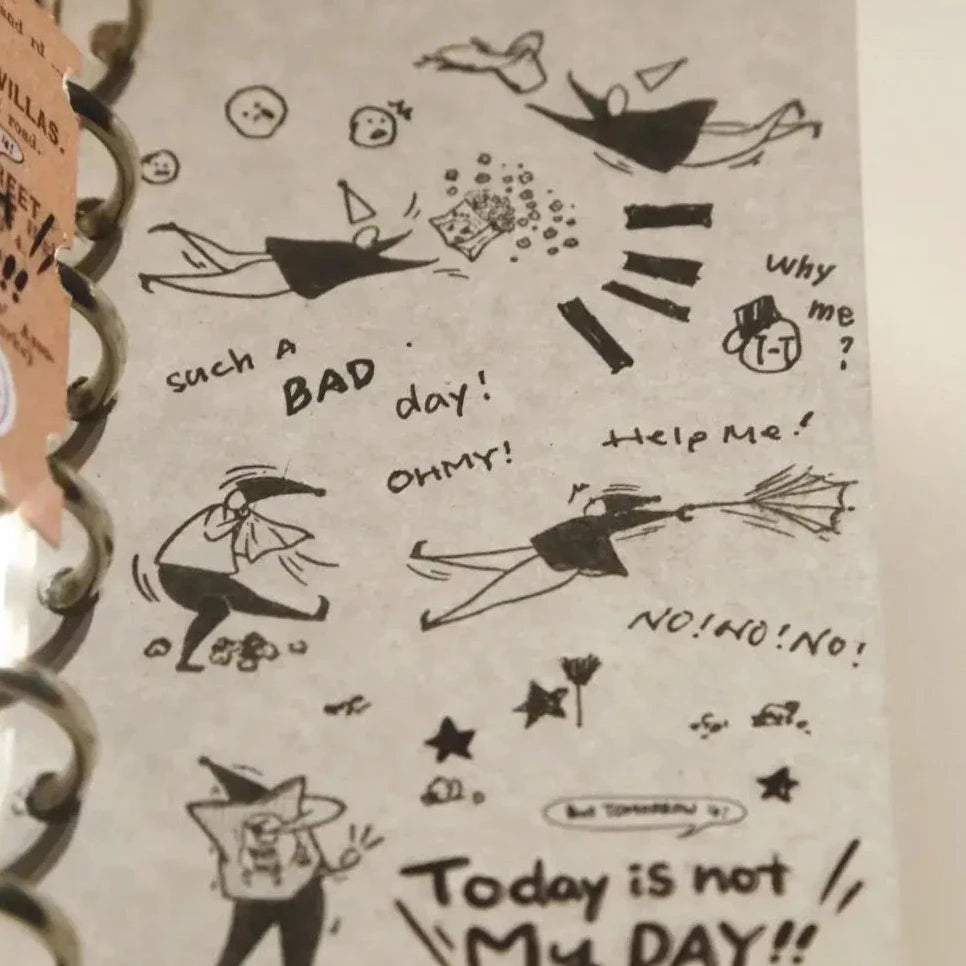 and rd
VILLAS.
road.
REET
!!!
why
me
?
T-T
such A
BAD
day!
OHMY!
Help Me!
NO! NO! NO!
But TOMORROW is!
Today is not
My DAY!!